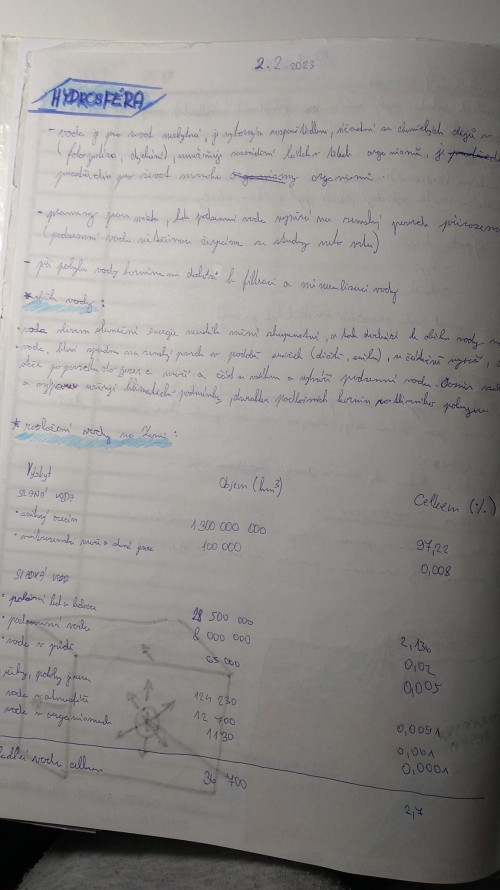 2.2.2023
HYDROSFÉRA
- voda je pro život nezbytná, je výborným rozpouštědlem, účastní se chemických dějů v
(fotosyntéza, dýchání), umožňuje rozvádění látek v tělech organismů, je
prostředím pro život mnoha organismů
- prameny jsou místa, kde podzemní voda vyvěrá na zemský povrch přirozeně
(podzemní vodu většinou čerpáme ze studny nebo vrtu)
- při pohybu vody horninami dochází k filtraci a mineralizaci vody
* oběh vody:
• voda vlivem sluneční energie neustále mění skupenství, a tak dochází k oběhu vody na
• voda, která spadne na zemský povrch v podobě srážek (déšť, sníh), se částečně vypaří,
steče po povrchu do jezer a moří a část se vsákne a vytváří podzemní vodu.
a výparu určují klimatické podmínky, skladba podložních hornin rostlinného pokryvu
* rozložení vody na Zemi:
Výskyt Objem (km³) Celkem (%)
SLANÁ VODA
• světový oceán 1 300 000 000 97,22
• vnitrozemská moře a slaná jezera 100 000 0,008
SLADKÁ VODA
• polární led a ledovce 28 500 000 2,136
• podzemní voda 8 000 000 0,02
• voda v půdě 65 000 0,005
řeky, potoky, jezera 124 230 0,0091
voda v atmosféře 12 700 0,001
voda v organismech 1130 0,0001
sladká voda celkem 36 700 2,7